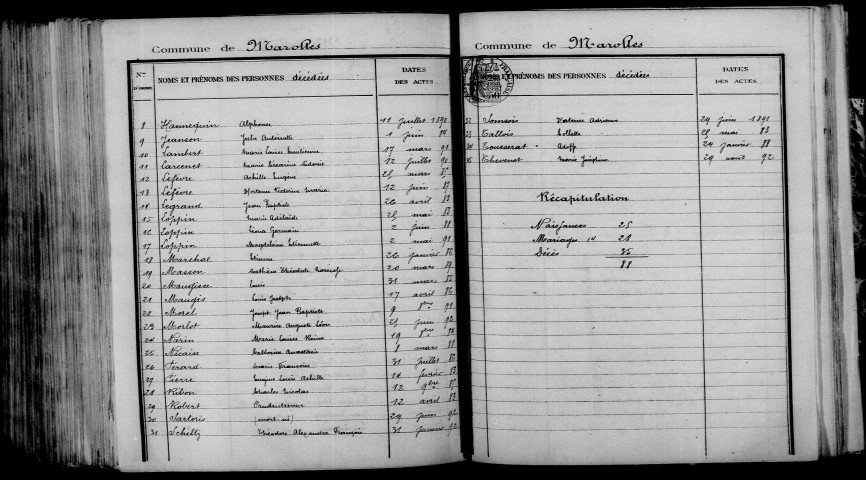 Commune de Marolles
Nos D'ORDRE
NOMS ET PRÉNOMS DES PERSONNES décédées
DATES DES ACTES
8 Hannequin Alphonse 11 juillet 1890
9 Jeanson Julie Antoinette 1 juin 84
10 Lambert Marie Louise 17 mars 91
11 Larcenet Marie 12 juillet 90
12 Lefèvre Achille Eugène 25 mars
13 Lefèvre Hortense Victorine Maria 12 juin 87
14 Legrand Jean Baptiste 26 avril 83
15 Loppin Marie Adélaïde 25 mai
16 Loppin Germain 2 juin 88
17 Loppin Magdeleine Etiennette 2 mai 91
18 Marchal Etienne 26 janvier 86
19 Masson Théodule 20 mars
20 Maugisse Louis 31 mars
21 Maugis Louis Joseph 17 avril 86
22 Morel Joseph Jean Baptiste 9 91
23 Morlot Maurice Auguste Léon 25 juin 92
24 Narin Marie Louise 19
25 Nicaise Catherine 8 mars 88
26 Pérard Marie Françoise 31 juillet
27 Pierre Louis Achille 14 février
28 Ribon Charles Nicolas 12 9bre
29 Robert 12 avril
30 Sartoris (mort-né) 29 juin 92
31 Schiltz Théodore Alexandre François 31 janvier 92
Commune de Marolles
NOMS ET PRÉNOMS DES PERSONNES décédées
DATES DES ACTES
32 Hortense 29 juin 1891
33 Tallois 25 mai 83
34 Tousserat Adolf 24 janvier 88
35 Thevenet Marie Joséphine 29 août 92
Récapitulation
Naissances 25
Mariage 28
Décès 35
88